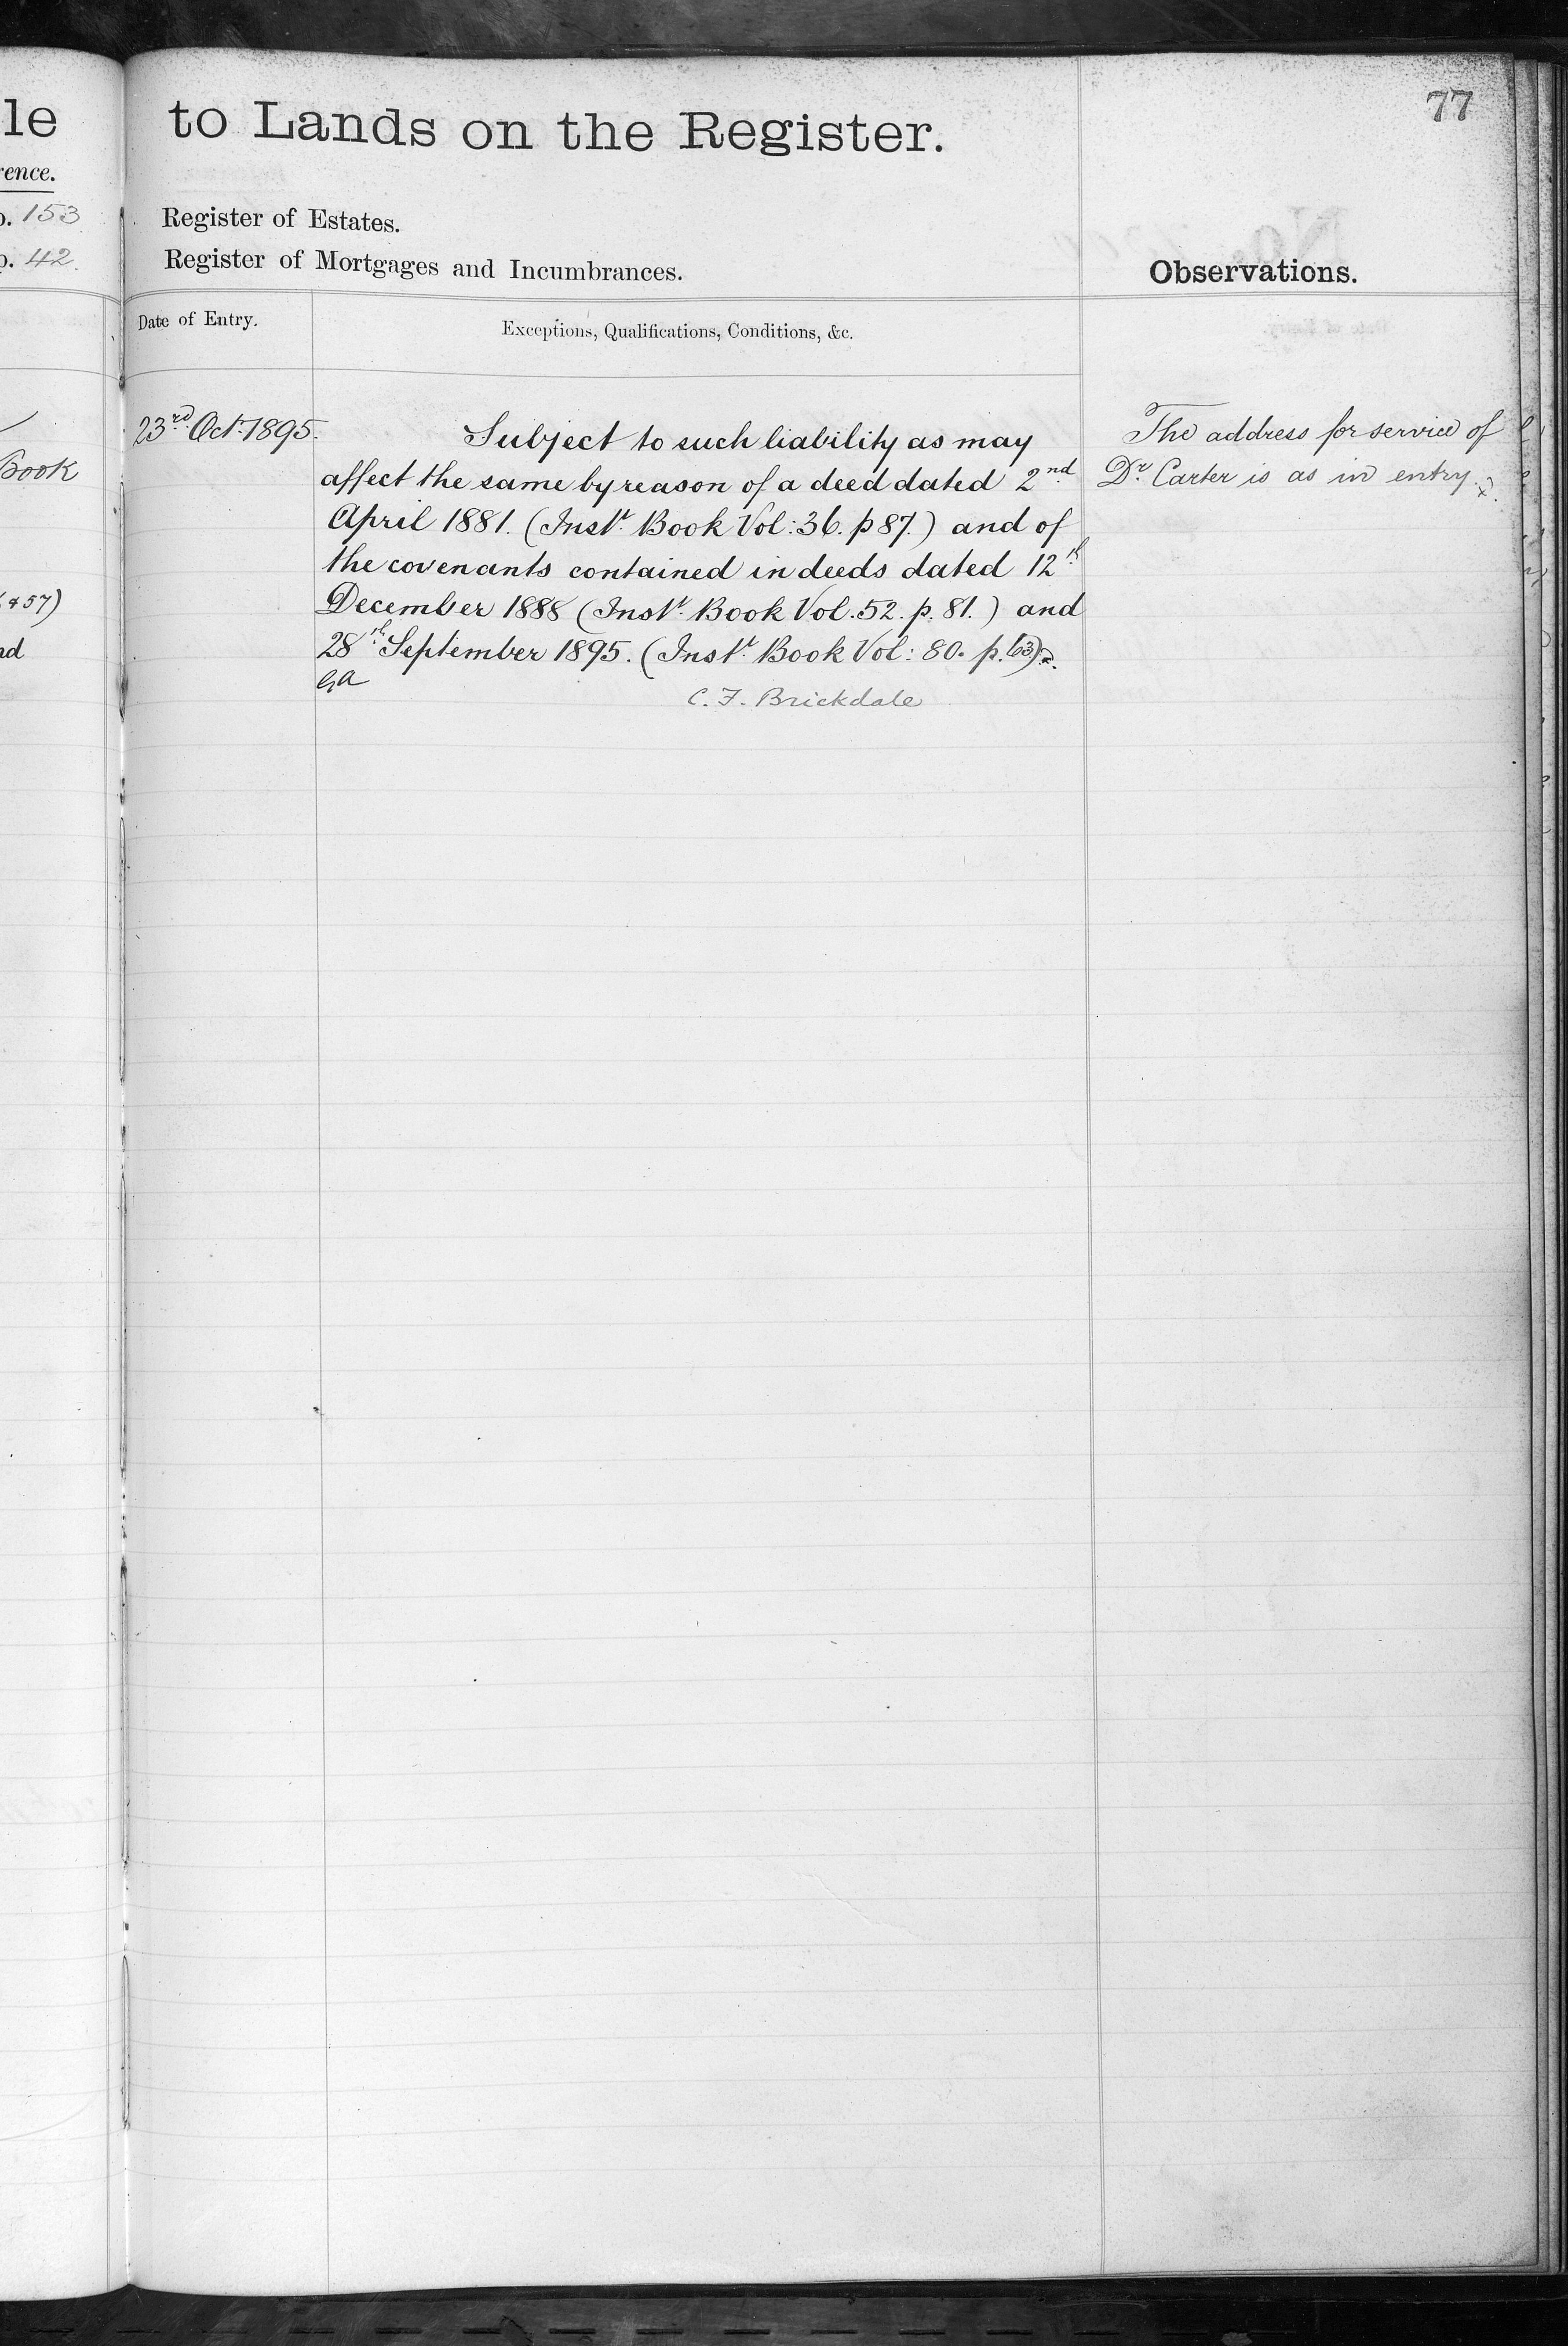 77
le to Lands on the Register.
rence.
o. 153 Register of Estates.
p. 42. Register of Mortgages and Incumbrances.
Observations.
Date of Entry.
Exceptions, Qualifications, Conditions, &c.
23rd Oct. 1895.
Subject to such liability as may
affect the same by reason of a deed dated 2nd
April 1881. (Inst. Book Vol: 36. p 87.) and of
the covenants contained in deeds dated 12th
December 1888 (Inst. Book Vol. 52. p. 81.) and
28th September 1895. (Inst. Book Vol: 80. p. 63)
C. F. Brickdale
The address for service of
Dr. Carter is as in entry 2.
Book
& 57)
nd